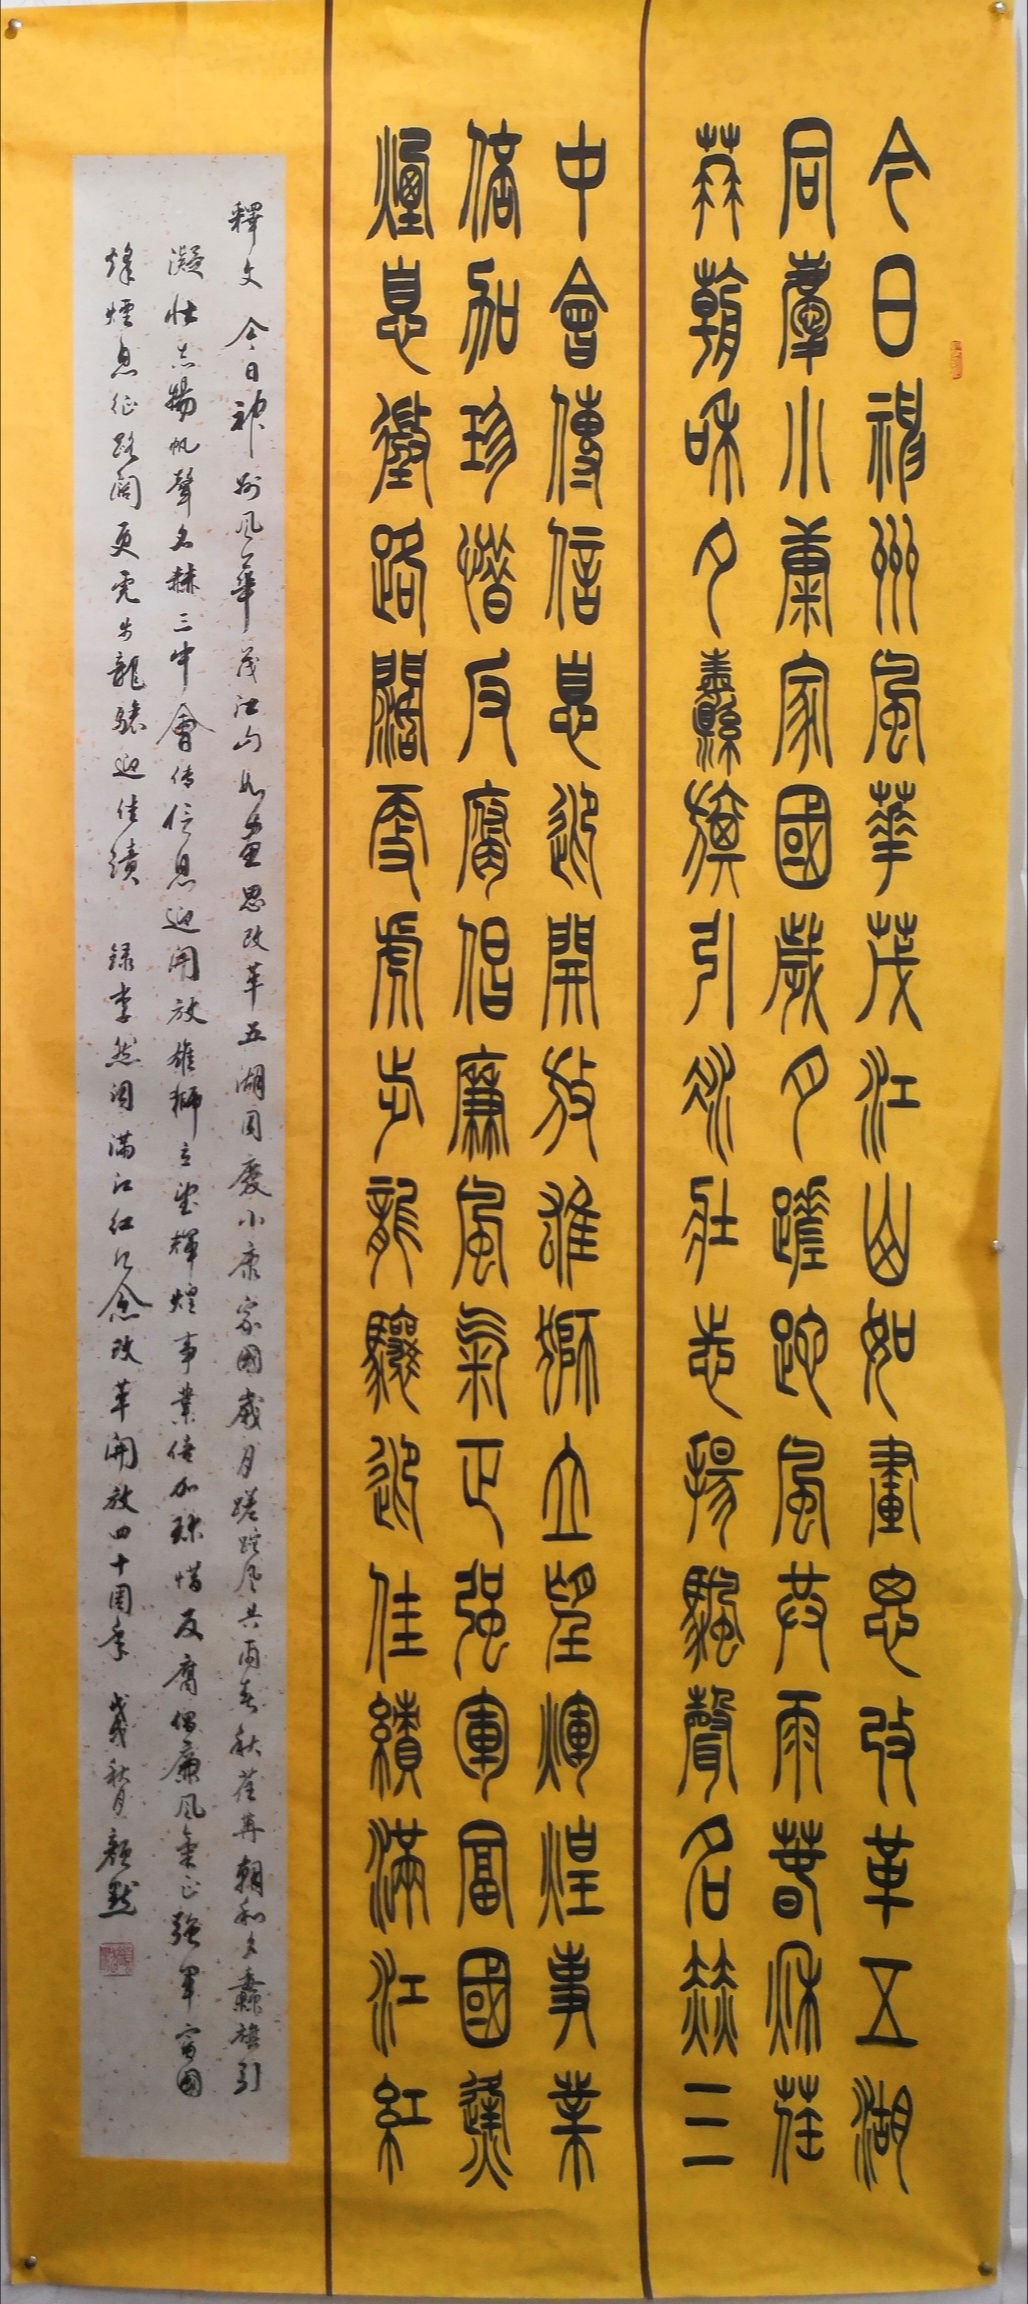 今日神州風華茂江山如畫思改革五湖
同慶小康家國歲月蹉跎風共雨春秋荏
苒朝和夕纛旗引凝壯志揚颿聲名赫三
中會傳信息迎開放雄獅立望輝煌事業
倍加珍惜反腐倡廉風氣正強軍富國烽
煙息徵路闊更虎步龍驤迎佳績滿江紅
釋文 今日神州風華茂江山如畫思改革五湖同慶小康家國歲月蹉跎風共雨春秋荏苒朝和夕纛旗引
凝壯志揚帆聲名赫三中會传信息迎開放雄獅立望輝煌事業倍加珍惜反腐倡廉風氣正強軍富國
烽煙息征路闊更虎步龍驤迎佳績 録李然 滿江红 念改革開放四十周年 戊戌秋月 顏默